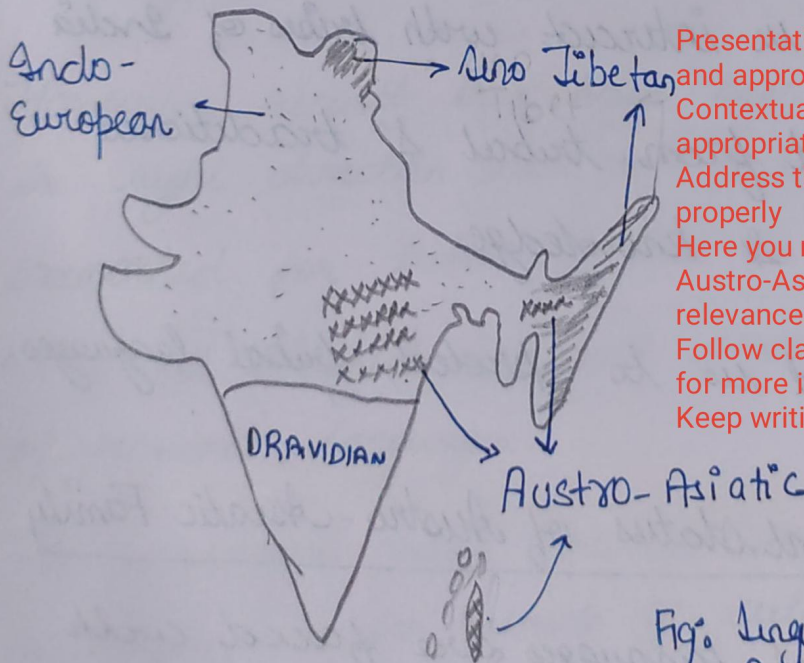 Indo-
European
Sino Tibetan
DRAVIDIAN
xxxxxxx
xxxxxx
xxxxx
xxxxxxx
xxxx
Austro-Asiatic
Fig:
Presentat
and appro
Contextua
appropriat
Address t
properly
Here you
Austro-As
relevance
Follow cla
for more i
Keep writi